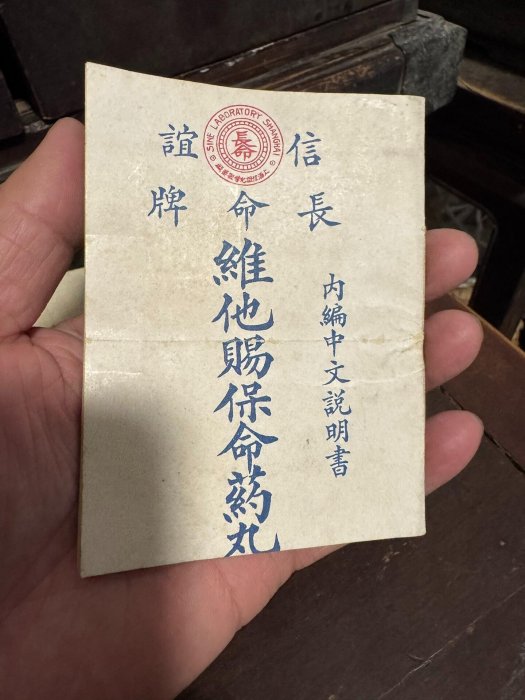 SINE LABORATORY SHANGHAI
長命
信誼
長命牌
內編中文説明書
維他賜保命葯丸